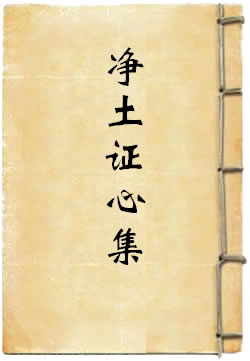 净土证心集